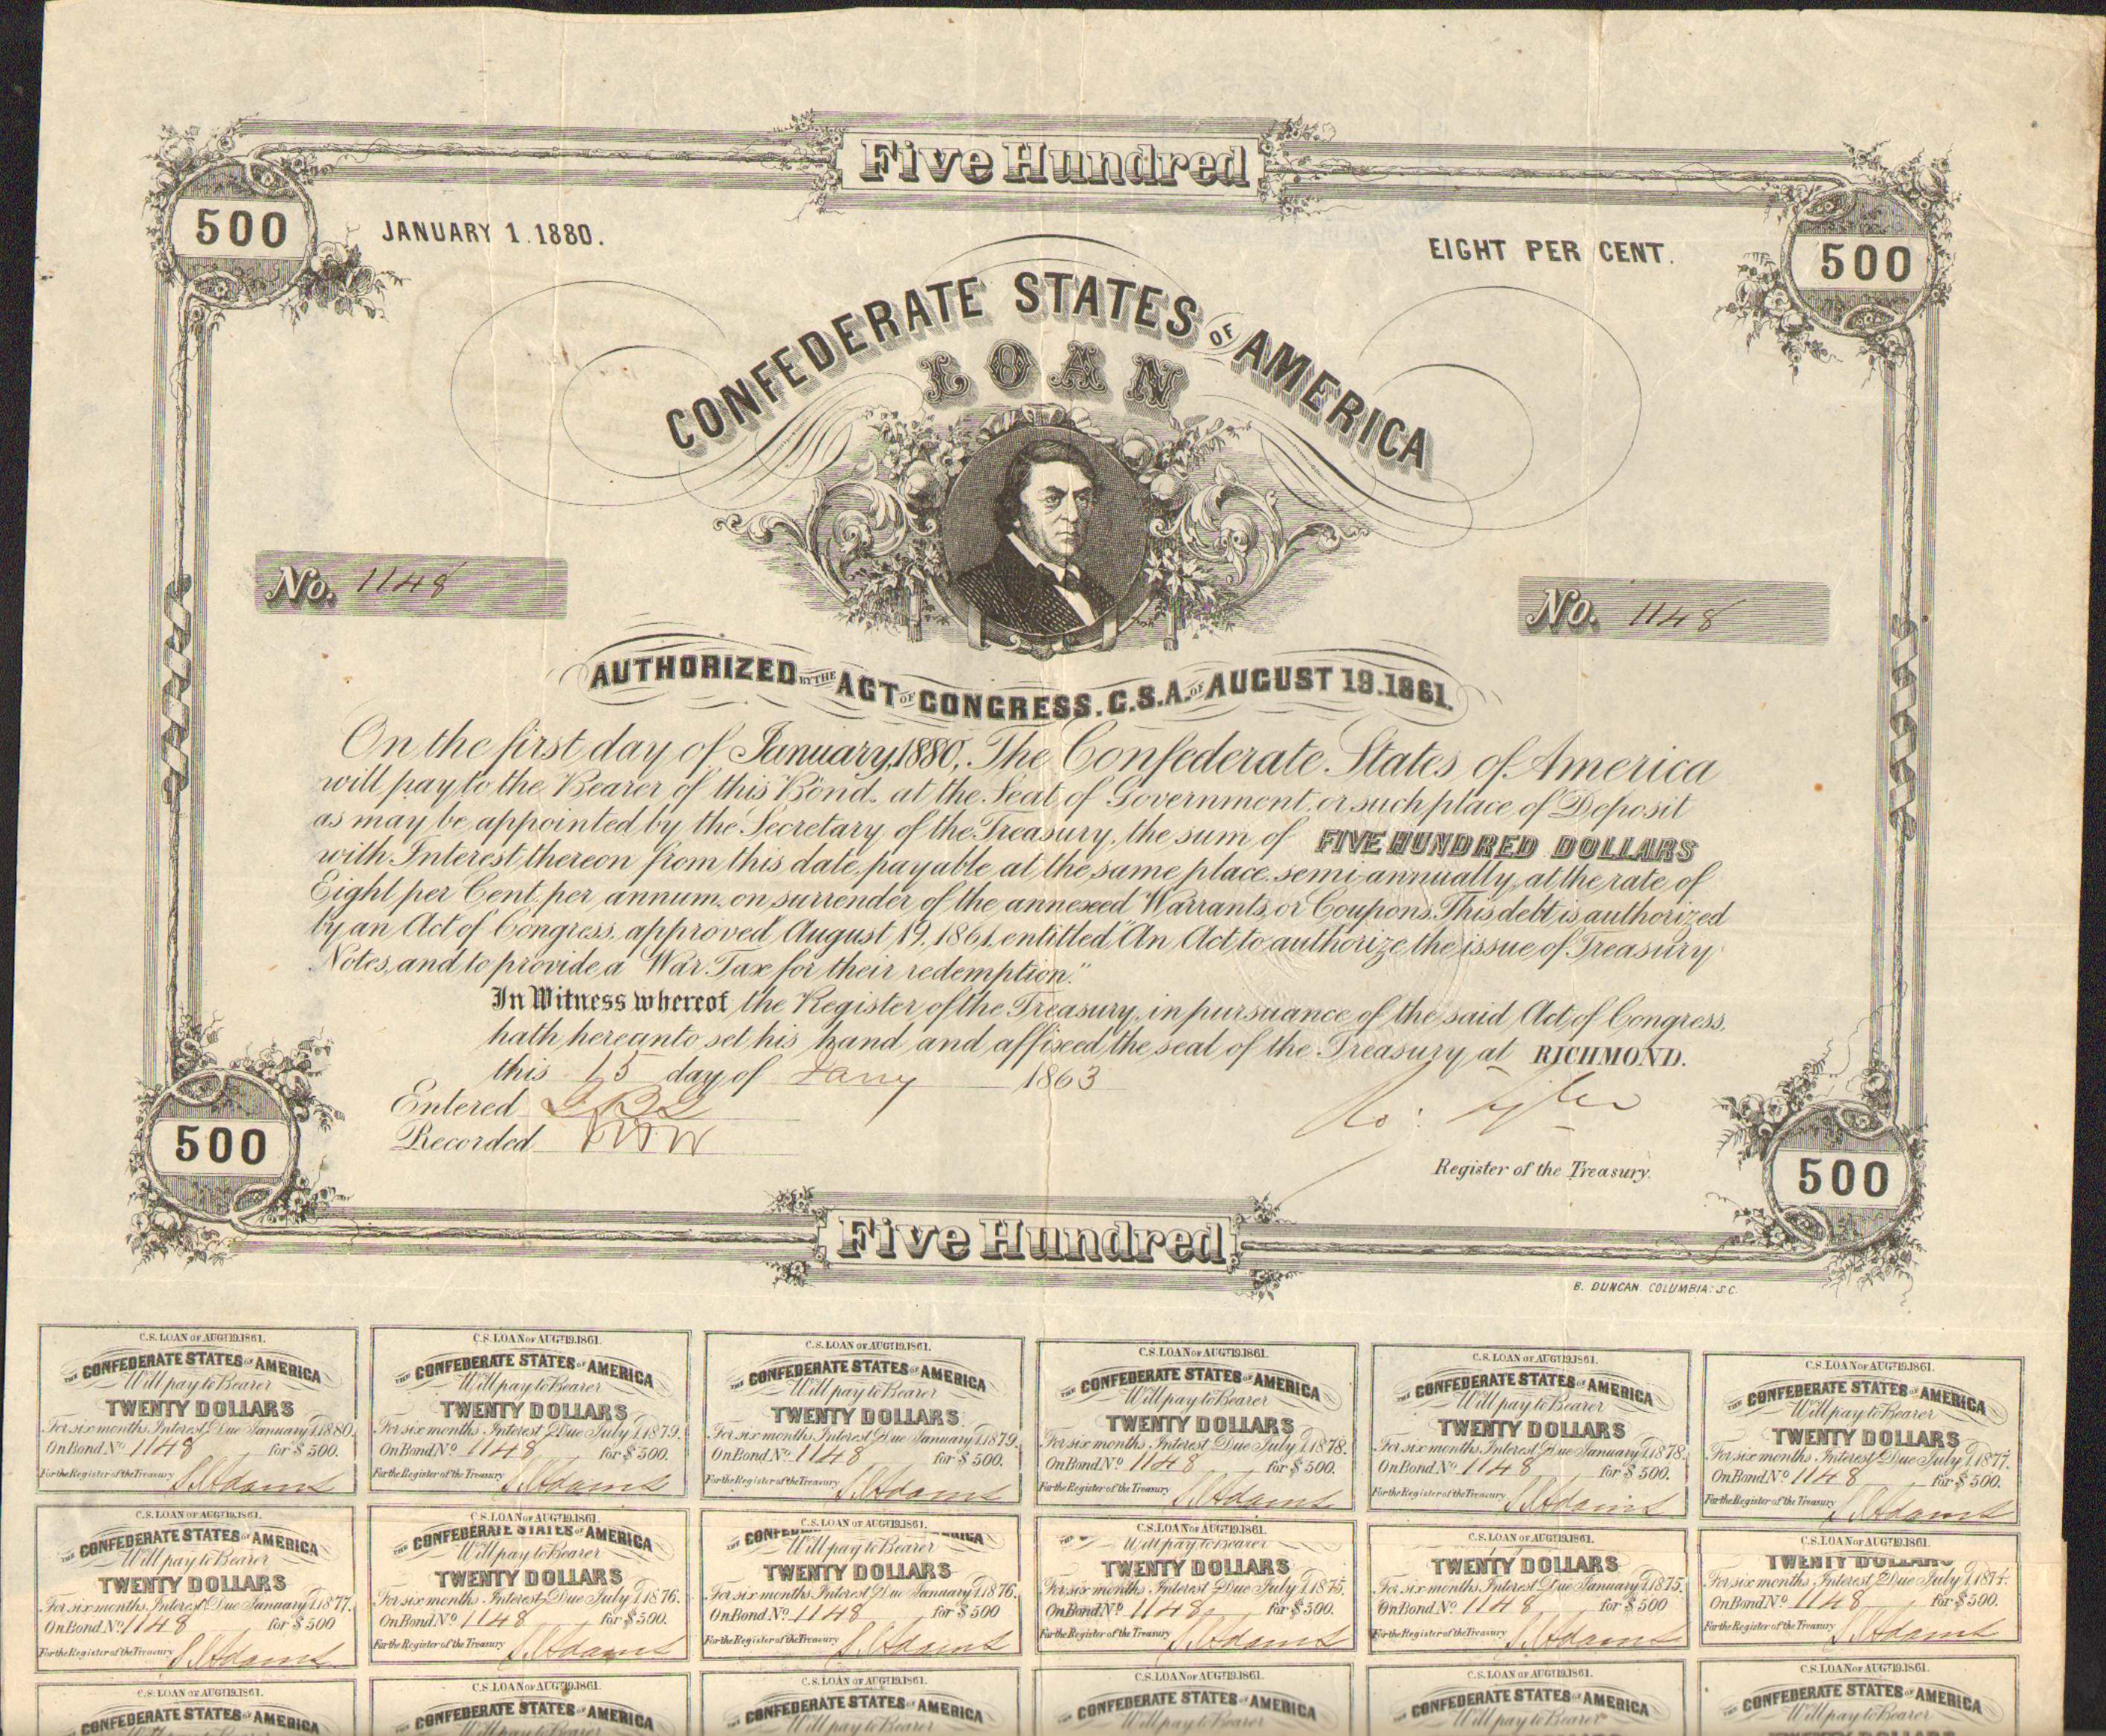 Five Hundred
500
500
JANUARY 1. 1880.
EIGHT PER CENT.
CONFEDERATE STATES OF AMERICA
LOAN
No. 1148
No. 1148
AUTHORIZED BY THE ACT OF CONGRESS. C.S.A. OF AUGUST 19. 1861.
On the first day of January, 1880, The Confederate States of America
will pay to the Bearer of this Bond, at the Seat of Government, or such place of Deposit
as may be appointed by the Secretary of the Treasury, the sum of FIVE HUNDRED DOLLARS
with Interest thereon from this date, payable at the same place semi-annually, at the rate of
Eight per Cent. per annum, on surrender of the annexed Warrants, or Coupons. This debt is authorized
by an Act of Congress, approved August 19, 1861, entitled "An Act to authorize the issue of Treasury
Notes, and to provide a War Tax for their redemption."
In Witness whereof the Register of the Treasury, in pursuance of the said Act of Congress,
hath hereunto set his hand and affixed the seal of the Treasury at RICHMOND.
this 15 day of Jany 1863
Entered
Recorded
Ro: Tyler
Register of the Treasury.
500
500
Five Hundred
B. DUNCAN. COLUMBIA. S.C.
C.S. LOAN OF AUGT 19.1861.
THE CONFEDERATE STATES OF AMERICA
Will pay to Bearer
TWENTY DOLLARS
For six months Interest Due January 1, 1880.
On Bond No. 1148 for $500.
For the Register of the Treasury
S. Adams
C.S. LOAN OF AUGT 19.1861.
THE CONFEDERATE STATES OF AMERICA
Will pay to Bearer
TWENTY DOLLARS
For six months Interest Due July 1, 1879.
On Bond No. 1148 for $500.
For the Register of the Treasury
S. Adams
C.S. LOAN OF AUGT 19.1861.
THE CONFEDERATE STATES OF AMERICA
Will pay to Bearer
TWENTY DOLLARS
For six months Interest Due January 1, 1879.
On Bond No. 1148 for $500.
For the Register of the Treasury
S. Adams
C.S. LOAN OF AUGT 19.1861.
THE CONFEDERATE STATES OF AMERICA
Will pay to Bearer
TWENTY DOLLARS
For six months Interest Due July 1, 1878.
On Bond No. 1148 for $500.
For the Register of the Treasury
S. Adams
C.S. LOAN OF AUGT 19.1861.
THE CONFEDERATE STATES OF AMERICA
Will pay to Bearer
TWENTY DOLLARS
For six months Interest Due January 1, 1878.
On Bond No. 1148 for $500.
For the Register of the Treasury
S. Adams
C.S. LOAN OF AUGT 19.1861.
THE CONFEDERATE STATES OF AMERICA
Will pay to Bearer
TWENTY DOLLARS
For six months Interest Due July 1, 1877.
On Bond No. 1148 for $500.
For the Register of the Treasury
S. Adams
C.S. LOAN OF AUGT 19.1861.
THE CONFEDERATE STATES OF AMERICA
Will pay to Bearer
TWENTY DOLLARS
For six months Interest Due January 1, 1877.
On Bond No. 1148 for $500
For the Register of the Treasury
S. Adams
C.S. LOAN OF AUGT 19.1861.
THE CONFEDERATE STATES OF AMERICA
Will pay to Bearer
TWENTY DOLLARS
For six months Interest Due July 1, 1876.
On Bond No. 1148 for $500.
For the Register of the Treasury
S. Adams
C.S. LOAN OF AUGT 19.1861.
Will pay to Bearer
TWENTY DOLLARS
For six months Interest Due January 1, 1876.
On Bond No. 1148 for $500
For the Register of the Treasury
S. Adams
C.S. LOAN OF AUGT 19.1861.
Will pay to Bearer
TWENTY DOLLARS
For six months Interest Due July 1, 1875.
On Bond No. 1148 for $500.
For the Register of the Treasury
S. Adams
C.S. LOAN OF AUGT 19.1861.
TWENTY DOLLARS
For six months Interest Due January 1, 1875.
On Bond No. 1148 for $500
For the Register of the Treasury
S. Adams
C.S. LOAN OF AUGT 19.1861.
TWENTY DOLLARS
For six months Interest Due July 1, 1874.
On Bond No. 1148 for $500.
For the Register of the Treasury
S. Adams
C.S. LOAN OF AUGT 19.1861.
CONFEDERATE STATES OF AMERICA
C.S. LOAN OF AUGT 19.1861.
THE CONFEDERATE STATES OF AMERICA
Will pay to Bearer
C.S. LOAN OF AUGT 19.1861.
THE CONFEDERATE STATES OF AMERICA
Will pay to Bearer
C.S. LOAN OF AUGT 19.1861.
THE CONFEDERATE STATES OF AMERICA
Will pay to Bearer
C.S. LOAN OF AUGT 19.1861.
THE CONFEDERATE STATES OF AMERICA
Will pay to Bearer
C.S. LOAN OF AUGT 19.1861.
THE CONFEDERATE STATES OF AMERICA
Will pay to Bearer